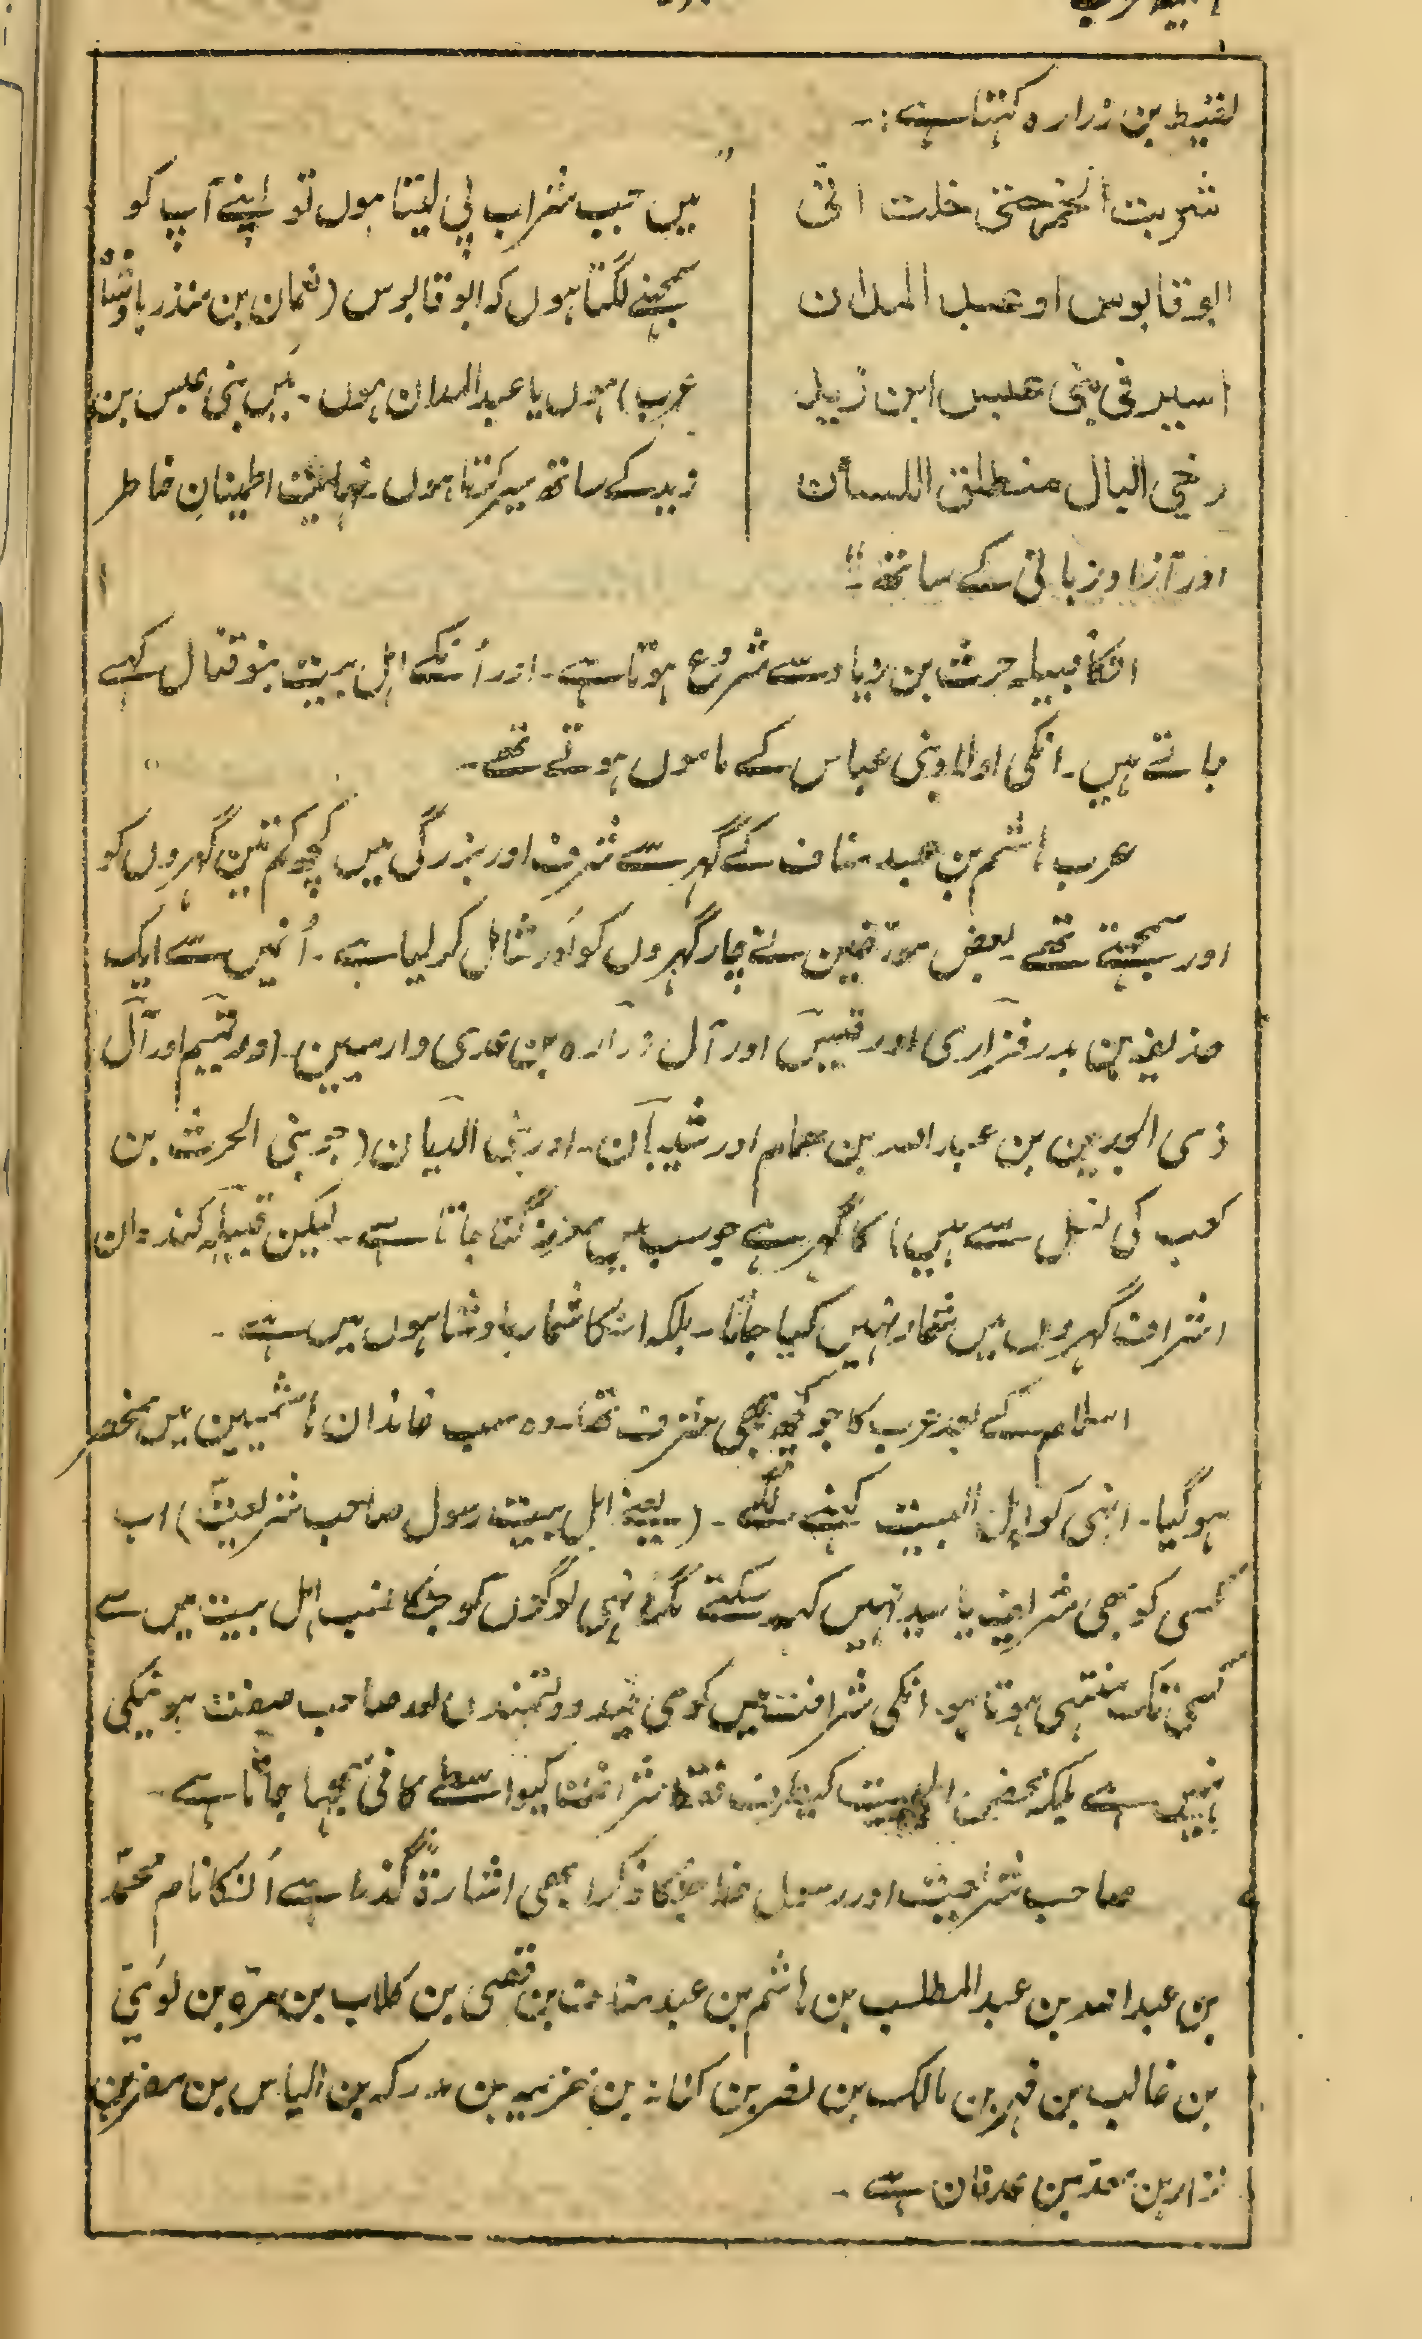 لقیط بن زرارہ کہتا ہے :۔
شربت الخمر حتی خلت انی
ابو قابوس او عبد المدان
اسیر فی بنی عبس ابن زید
رخی البال منطلق اللسان
"میں جب شراب پی لیتا ہوں تو اپنے آپ کو
سمجہنے لگتا ہوں کہ ابو قابوس (نعمان بن منذر بادشاہ
عرب) ہوں یا عبد المدان ہوں۔ میں بنی عبس بن
زید کے ساتھ سیر کرتا ہوں۔ نہایت اطمینانِ خاطر
اور آزاد زبانی کے ساتھ۔"
انکا قبیلہ حرث بن زیاد سے شروع ہوتا ہے۔ اور اُنکے اہل بیت بنو قنال کہے
جاتے ہیں۔ انکی اولاد بنی عباس کے ماموں ہوتے تھے۔
عرب ہاشم بن عبد مناف کے گہر سے شرف اور بزرگی میں کچھ کم تین گہروں کو
اور سمجہتے تھے۔ بعض مورخین نے چار گہروں کو اَور شامل کر لیا ہے۔ اُنمیں سے ایک
حذیفہ بن بدر فزاری اور قیس اور آل زرارہ بن عدی دارمیین۔ اور تمیم اور آل
ذی الجدین بن عبد اللہ بن ہمام اور شیبان۔ اور بنی الدیان (جو بنی الحرث بن
کعب کی نسل سے ہیں) کا گہر ہے جو سب میں عزیز گنا جاتا ہے۔ لیکن قبیلہ کندہ ان
اشراف گہروں میں شمار نہیں کیا جاتا۔ بلکہ انکا شمار بادشاہوں میں ہے۔
اسلام کے بعد عرب کا جو کچھ بھی شرف تھا۔ وہ سب خاندان ہاشمیین میں منحصر
ہو گیا۔ انہی کو اہل البیت کہنے لگے۔ (یعنے اہل بیت رسول صاحب شریعت) اب
کسی کو بھی شریف یا سید نہیں کہہ سکتے مگر انہی لوگوں کو جنکا نسب اہل بیت میں سے
کسی تک منتہی ہوتا ہو۔ انکی شرافت میں کوئی قید دولتمندی اور صاحب صفت ہونیکی
نہیں ہے بلکہ محض اہلبیت کیطرف شرافت کیواسطے کافی سمجہا جاتا ہے۔
صاحب شریعت اور رسول خدا جنکا ذکر ابھی اشارۃً گذرا ہے اُنکا نام محمدؐ
بن عبد اللہ بن عبد المطلب بن ہاشم بن عبد مناف بن قصی بن کلاب بن مرّہ بن لوَیّ
بن غالب بن فہر بن مالک بن نضر بن کنانہ بن خزیمہ بن مدرکہ بن الیاس بن مضر بن
نزار بن معد بن عدنان ہے۔